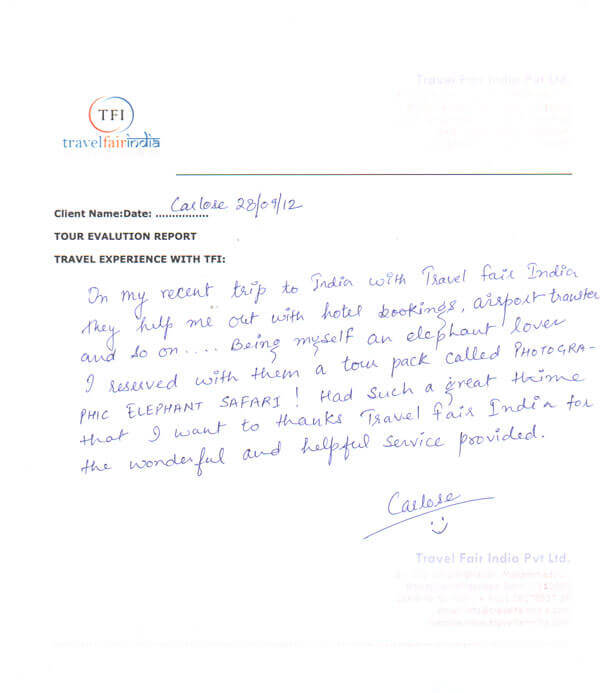 Travel Fair India Pvt Ltd.
TFI
travelfairindia
Client Name:Date: ................ Carlose 28/09/12
TOUR EVALUTION REPORT
TRAVEL EXPERIENCE WITH TFI:
On my recent trip to India with Travel fair India
they help me out with hotel bookings, airport transfer
and so on.... Being myself an elephant lover
I reserved with them a tour pack called PHOTOGRA-
PHIC ELEPHANT SAFARI! Had such a great thime
that I want to thanks Travel fair India for
the wonderful and helpful service provided.
Carlose
Travel Fair India Pvt Ltd.